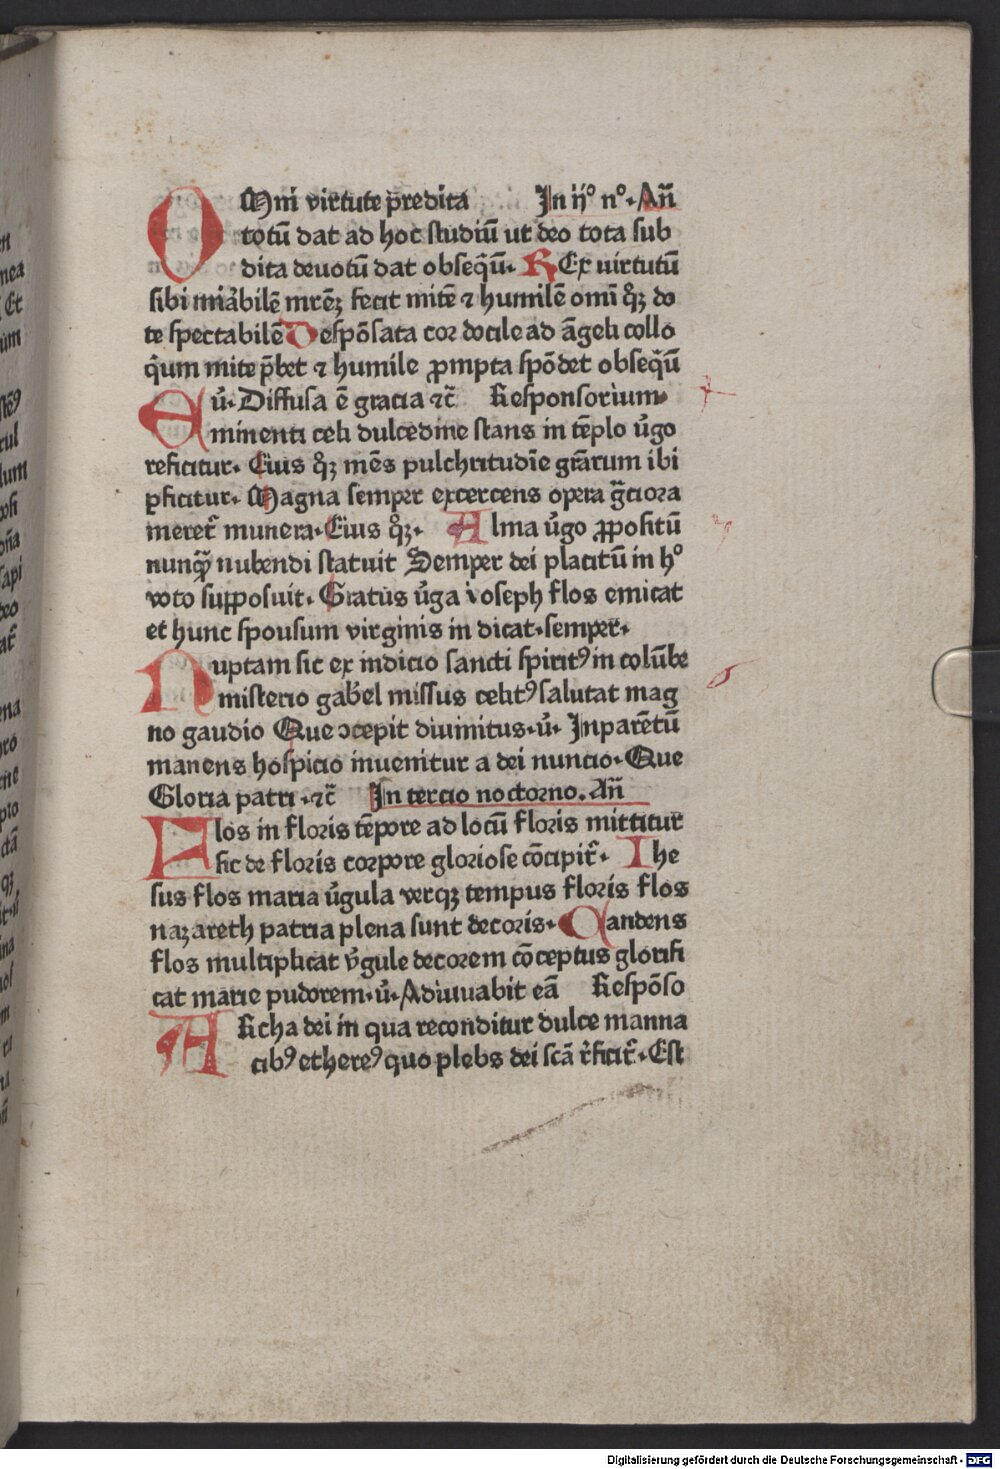 OMni virtute predita In ijº nº. Añ
totū dat ad hoc studiū ut deo tota sub
dita deuotū dat obseq̄ū. REx uirtutū
sibi mirabilē mrēʒ fecit mitē ⁊ humilē omī qꝫ do
te spectabilē Despōsata cor docile ad āgeli collo
q̄um mite p̄bet ⁊ humile ꝓmpta spōdet obseq̄ū
ꝟ. Diffusa ē gracia ⁊c̄ Responsorium
Eminenti celi dulcedine stans in tēplo ꝟgo
reficitur. Eius qꝫ mēs pulchritudīe gr̄arum ibi
ꝑficitur. Magna semper excercens opera gr̄ciora
meret̄ munera. Eius qꝫ. Alma ꝟgo ꝓpositū
nunqȝ nubendi statuit Semper dei placitū in hº
voto supposuit. Gratus ꝟga ioseph flos emicat
et hunc sponsum virginis in dicat. semper.
Nuptam sic ex indicio sancti spiritꝰ in colūbe
misterio gabēl missus celitꝰ salutat mag
no gaudio Que ↄcepit diuinitus. ꝟ. Inparētū
manens hospicio inuenitur a dei nuncio. Que
Gloria patri. ⁊c̄ In tercio nocturno. Añ
Flos in floris tēpore ad locū floris mittitur
sic de floris corpore gloriose cōcipit̄. Ihe
sus flos maria ꝟgula verqꝫ tempus floris flos
nazareth patria plena sunt decoris. Candens
flos multiplicat ꝟgule decorem cōceptus glorifi
cat marie pudorem. ꝟ. Adiuuabit eā Respōso
ARcha dei in qua reconditur dulce manna
cibꝰ ethereꝰ quo plebs dei scā r̄ficit̄. Est
Digitalisierung gefördert durch die Deutsche Forschungsgemeinschaft - DFG